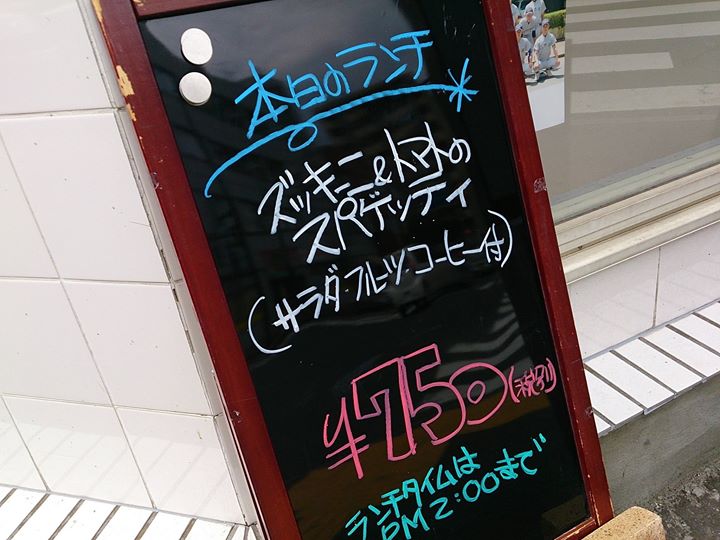 本日のランチ
ズッキーニ&トマトの
スパゲッティ
(サラダ・フルーツ・コーヒー付)
¥750(税別)
ランチタイムは
PM2:00まで